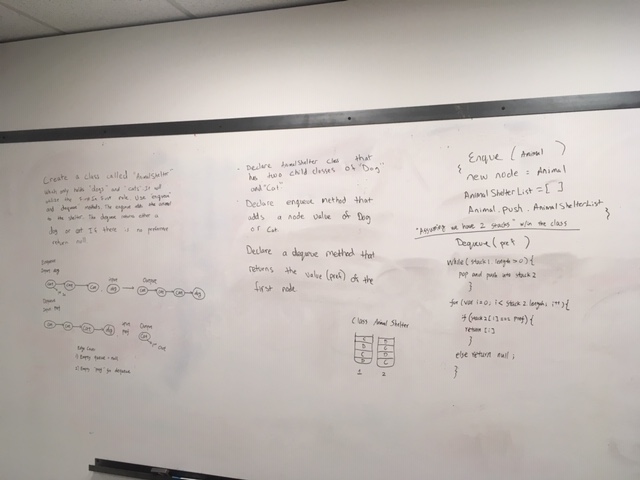 Create a class called "AnimalShelter"
which only holds "dogs" and "cats". It will
utilize the First In First rule. Use "enqueue"
and dequeue methods. The enqueue adds the animal
to the shelter. The dequeue returns either a
dog or cat. If there is no preference
return null
Input
Output
cat
cat
cat
dog
cat
cat
cat
dog
Input
Output
cat
cat
cat
dog
cat
Edge Cases
1) Empty queue = null
2) Empty "pref" for dequeue
• Declare AnimalShelter class that
has two child classes of "Dog"
and "Cat"
• Declare enqueue method that
adds a node value of Dog
or Cat.
Declare a dequeue method that
returns the value (pref) of the
first node
Class Animal Shelter
1 2
Enque (Animal)
{
new node = Animal
AnimalShelterList = [ ]
Animal.push.AnimalShelterList
}
"Assuming we have 2 stacks" w/in the class
Dequeue (pref)
while(stack1.length > 0){
pop and push into stack 2
}
for (var i=0; i < stack2 length; i++){
if (stack2[i] === pref) {
return [i]
}
else return null;
}